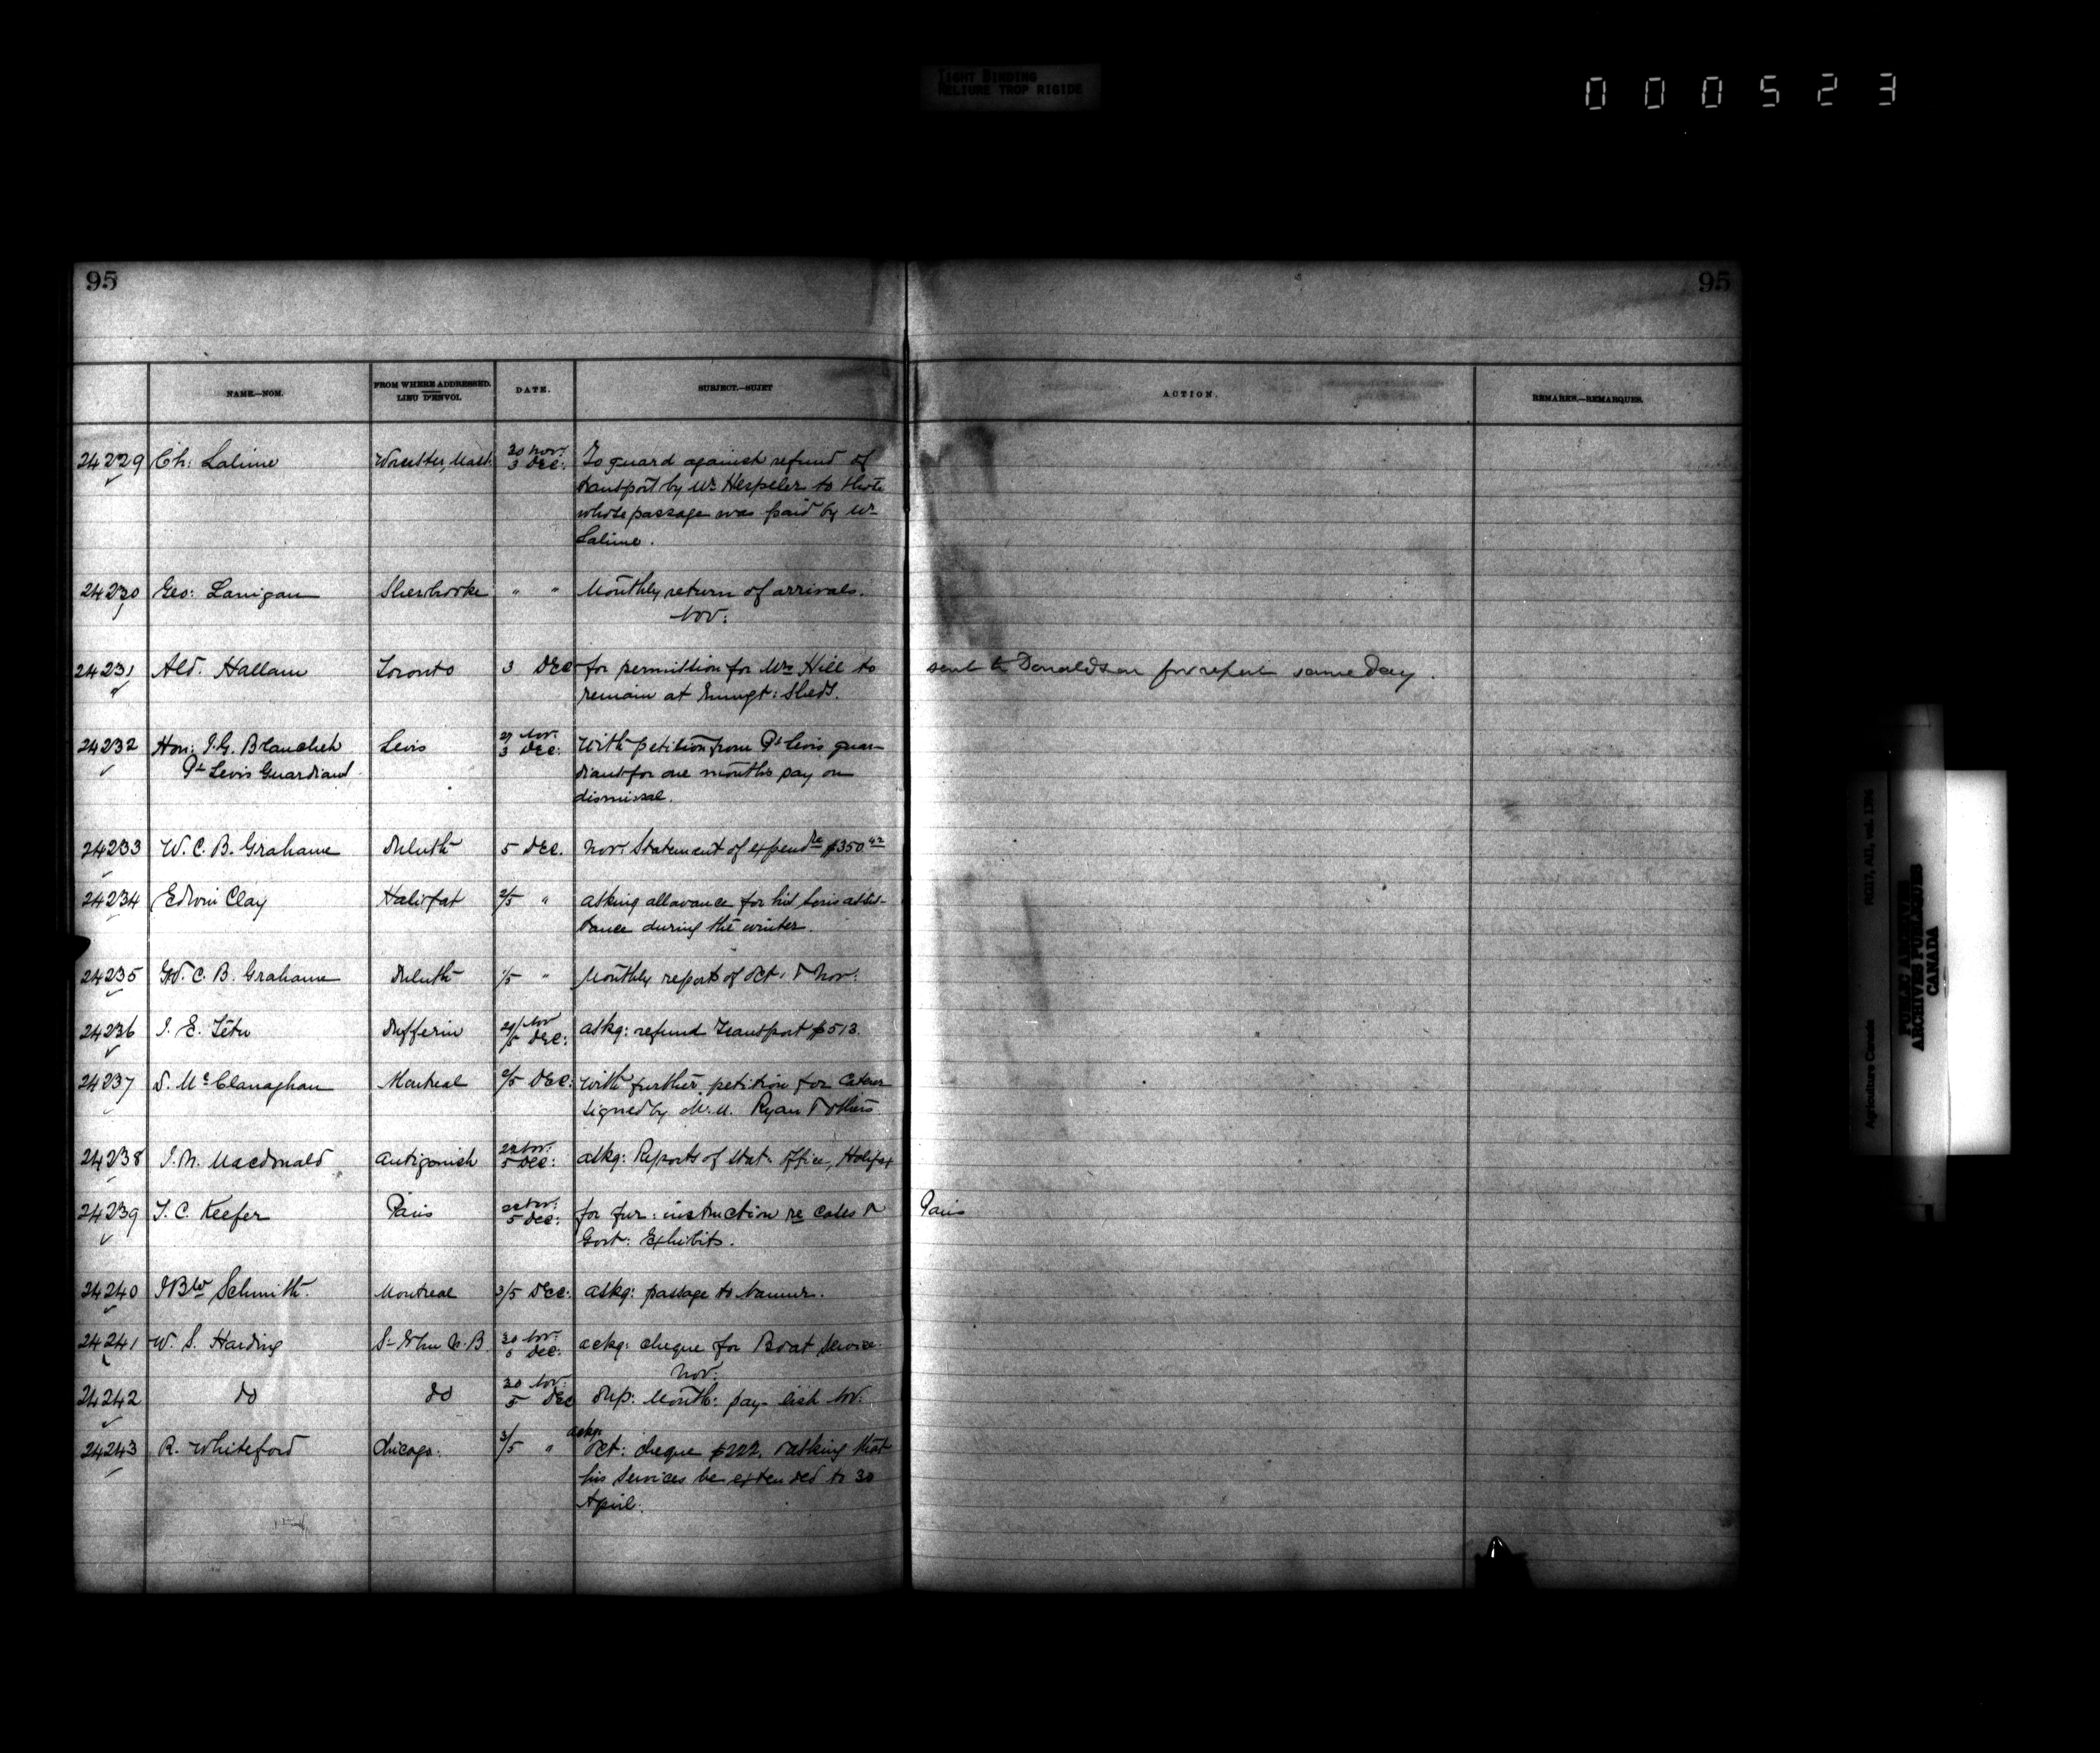 TIGHT BINDING
RELIURE TROP RIGIDE
000523
95
95
NAME.—NOM.
FROM WHERE ADDRESSED.
LIEU D'ENVOI.
DATE.
SUBJECT.—SUJET
ACTION.
REMARKS.—REMARQUES.
24229 Ch: Lalime Worcester, Mass. 30 Nov: 3 Dec: To guard against refund of
transport by Mr Hespeler to those
whose passage was paid by Mr
Lalime.
24230 Geo: Lanigan Sherbrooke " " Monthly return of arrivals.
Nov:
24231 Ald. Hallam Toronto 3 Dec for permission for Mrs Hill to sent to Donaldson for report same day.
remain at Emmgt: Sheds.
24232 Hon: J.G. Blanchet Levis 27 Nov: 3 Dec: With petition from Pt Levis guar-
Pt Levis Guardians dians for one month's pay on
dismissal.
24233 W. C. B. Grahame Duluth 5 Dec. Nov: Statement of expendre $350.42
24234 Edwin Clay Halifax 2/5 " asking allowance for his sons assis-
tance during the winter.
24235 W. C. B. Grahame Duluth 1/5 " Monthly reports of Oct. & Nov:
24236 J. E. Têtu Dufferin 29/ Nov /5 Dec: askg: refund Transport $513.
24237 D. McClanaghan Montreal 2/5 Dec: With further petition for Caterer
signed by M. U. Ryan & others
24238 J. N. Macdonald Antigonish 22 Nov: 5 Dec: askg: Reports of Stat: Office, Halifax
24239 T. C. Keefer Paris 22 Nov: 5 Dec: for fur: instruction re cases & Paris
Govt: Exhibits.
24240 Schmith. Montreal 3/5 Dec: askg: passage to
24241 W. S. Harding St John N.B. 30 Nov: 5 Dec: ackg: cheque for Boat service.
Nov:
24242 do do 30 Nov: 5 Dec Dup: Month: pay-list Nov:
24243 R. Whiteford Chicago. 3/5 " ackg:
Oct: cheque $222. & asking that
his services be extended to 30
April.
Agriculture Canada
RG17, AII, vol. 1394
PUBLIC ARCHIVES
ARCHIVES PUBLIQUES
CANADA